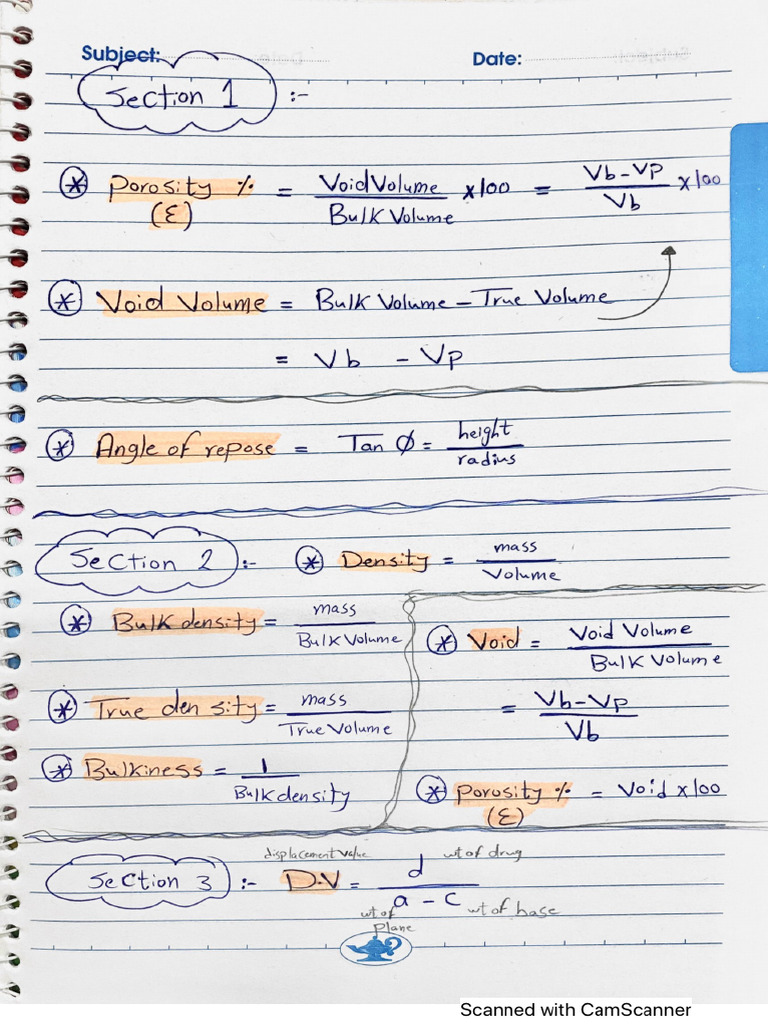 Subject: Date:
Section 1 :-
* Porosity % (ε) = Void Volume / Bulk Volume x100 = Vb - Vp / Vb x100
* Void Volume = Bulk Volume - True Volume
= Vb - Vp
* Angle of repose = Tan Ø = height / radius
Section 2 :- * Density = mass / Volume
* Bulk density = mass / Bulk Volume
* True density = mass / True Volume
* Bulkiness = 1 / Bulk density
* Void = Void Volume / Bulk Volume
= Vb - Vp / Vb
* Porosity % (ε) = Void x100
Section 3 :- displacement value D.V = d wt of drug / a - c wt of Plane wt of base
Scanned with CamScanner